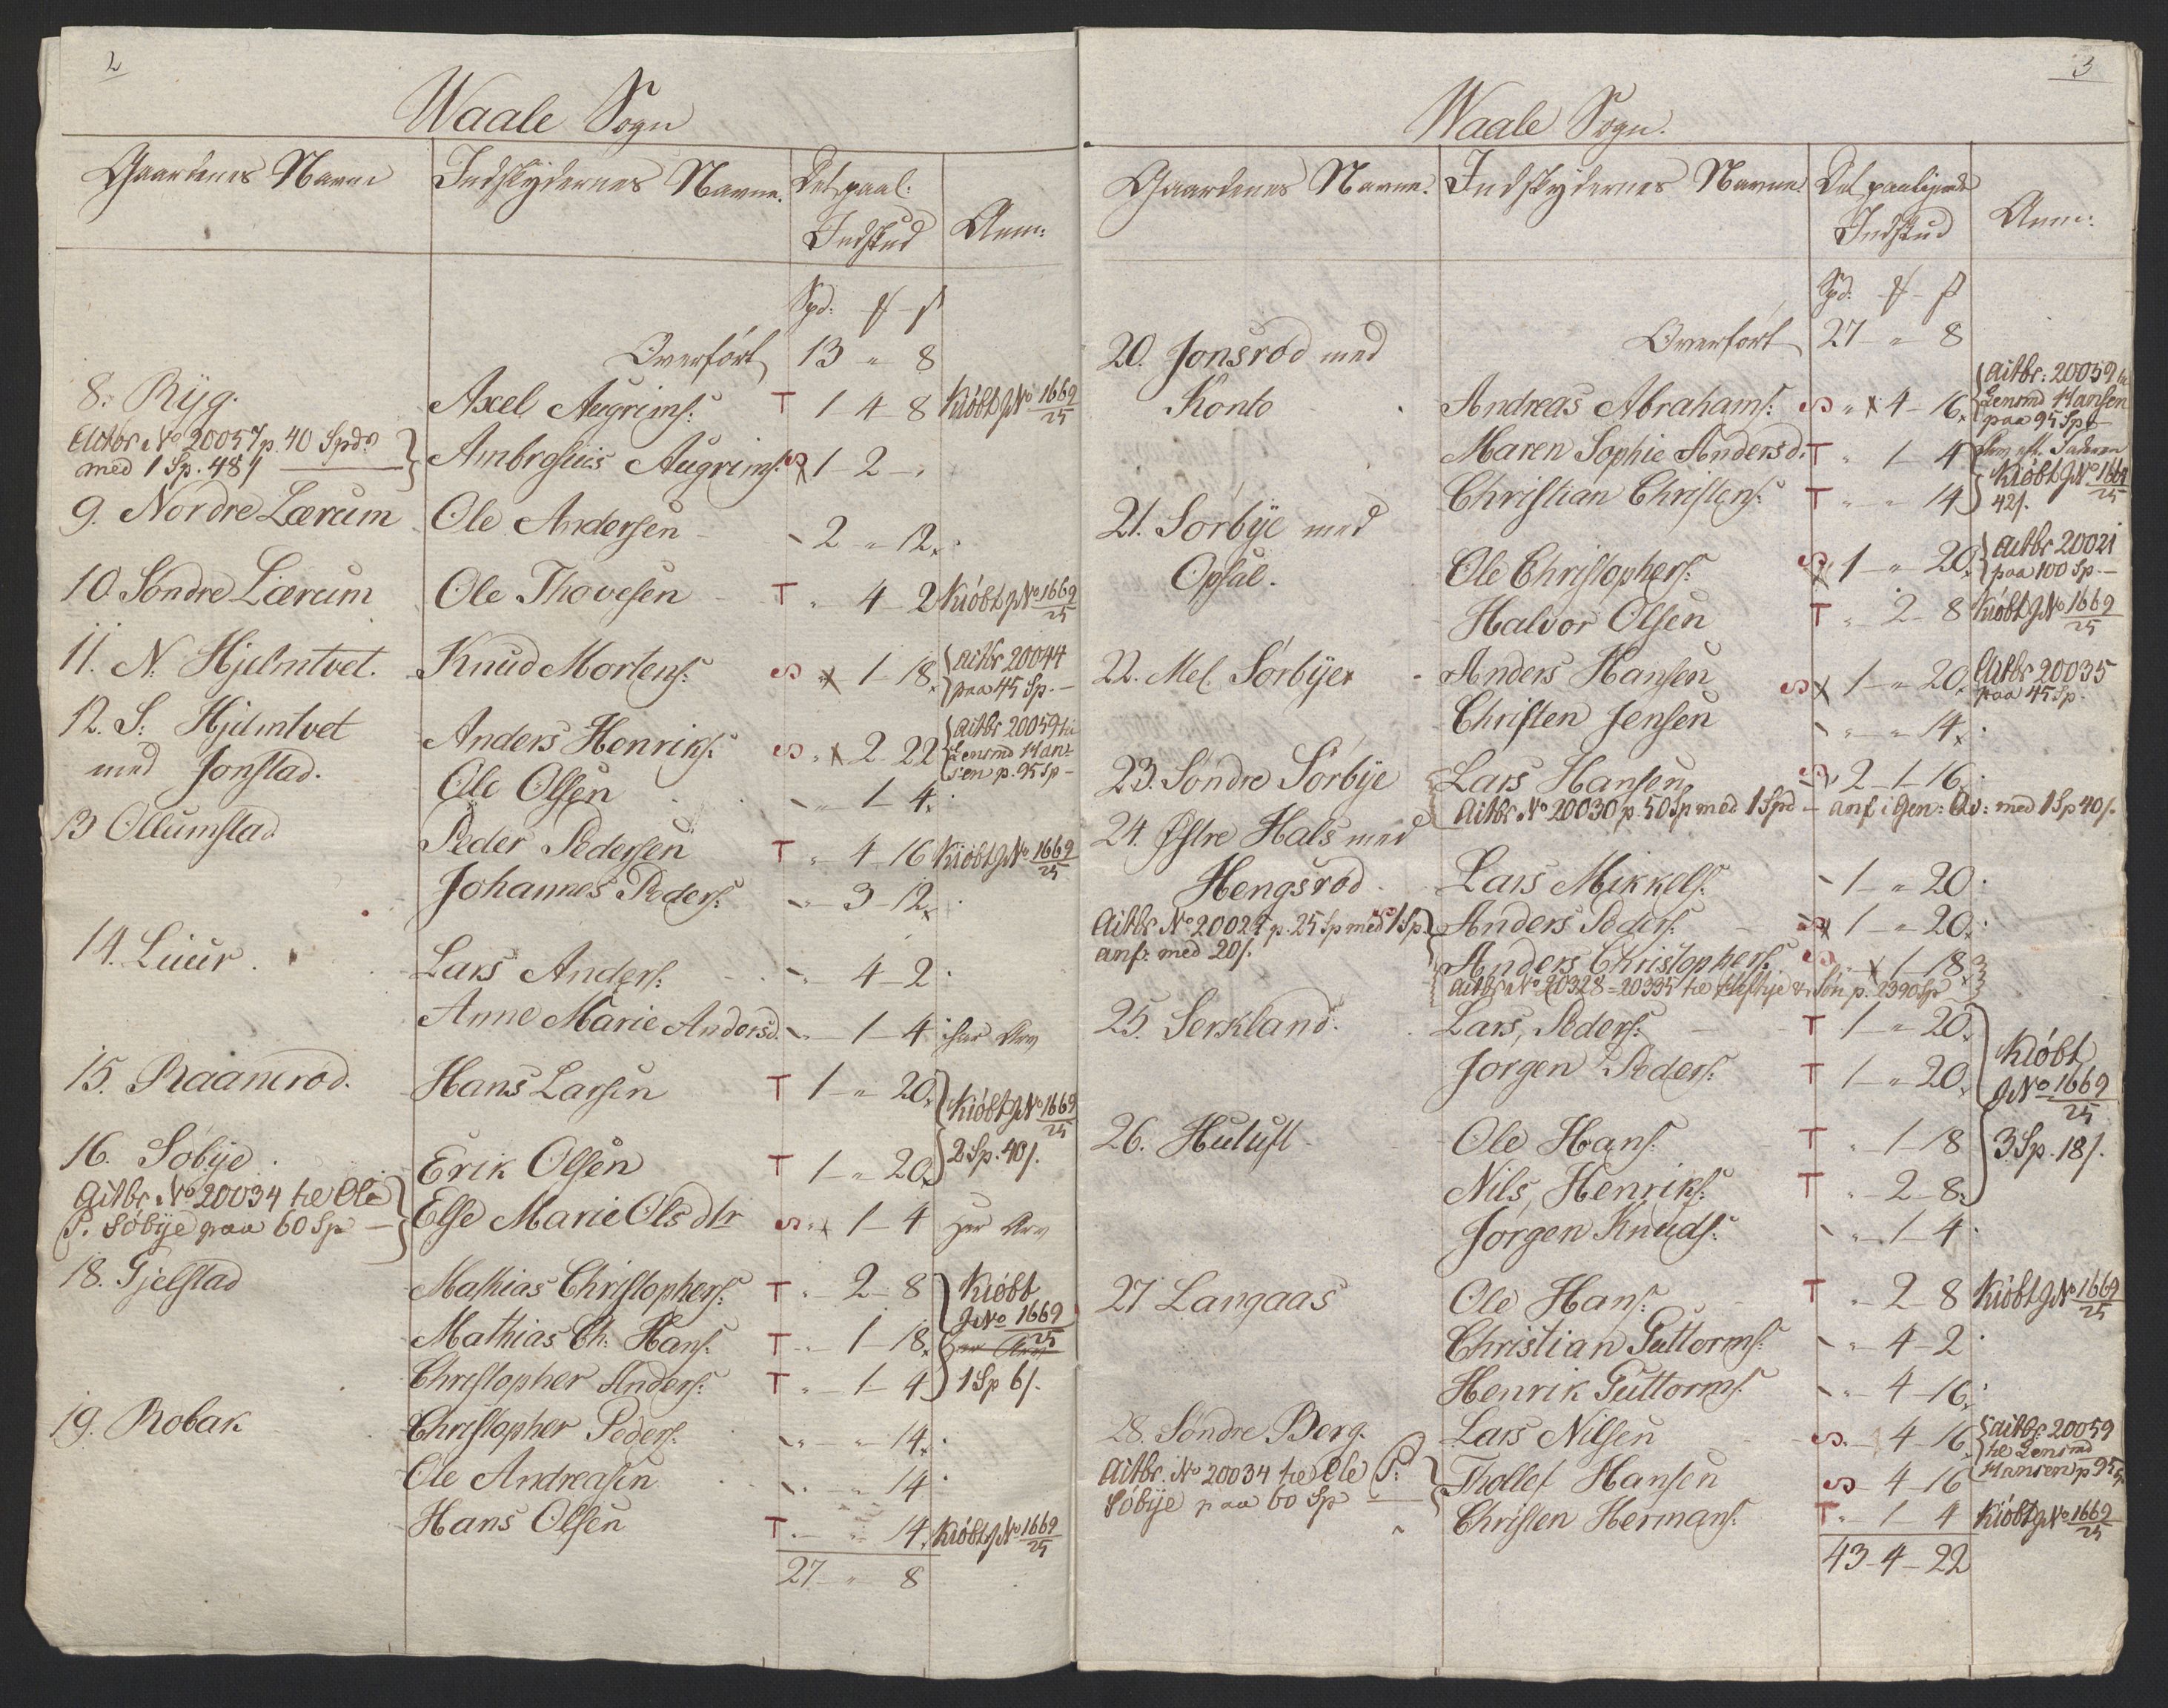 2
Waale Sogn
Gaardenes Navne Indskydernes Navne. Det paal: Indskud Anm:
Spd: ƒ ß
Overført 13 „ 8
8. Ryg. Axel Augrims: T 1 4 8 Kiøbt JNo 1669/25
Aitbr No 20057 p. 40 Spd. med 1 Sp. 48ß } Ambrosius Augrims: S x 1 2 „
9. Nordre Lærum Ole Andersen - 2 „ 12.
10. Søndre Lærum Ole Thovesen T „ 4 2 Kiøbt JNo 1669/25
11. N. Hjelmtvet. Knud Mortens: S x 1 18. { Aitbr 20044 paa 45 Sp. —
12. S: Hjelmtvet Anders Henriks: S „ x 2 22 { Aitbr 20059 til Lensmd Hansen p. 95 Sp —
med Jonstad. Ole Olsen - „ 1 4.
13 Ollumstad Peder Pedersen T „ 4 16 Kiøbt JNo 1669/25
Johannes Peders: - „ 3 12.
14. Liuur. Lars Anders: - „ 4 2.
Anne Marie Andersd. - „ 1 4 har Arv
15. Raanerød. Hans Larsen T 1 „ 20. } Kiøbt JNo 1669/25
16. Søbye Erik Olsen T 1 „ 20. } 2 Sp. 40ß.
Aitbr No 20034 til Ole P. Søbye paa 60 Sp — } Else Marie Ols dtr S „ x 1 4 har Arv
18. Gjelstad Mathias Christophers: T „ 2 8 } Kiøbt JNo 1669/25
Mathias Ch: Hans: T „ 1 18. har Arv
Christopher Anders: T „ 1 4 } 1 Sp 6ß.
19. Robak Christopher Peders: - „ „ 14.
Ole Andreasen - „ „ 14.
Hans Olsen T „ „ 14. Kiøbt JNo 1669/25
27 „ 8
3
Waale Sogn.
Gaardenes Navne. Indskydernes Navne Det paaligende Indskud Anm:
Spd: ƒ ß
Overført 27 „ 8
20. Jonsrød med
Konto Andreas Abrahams: S „ x 4 16. { Aitbr: 20059 til Lensmd Hansen paa 95 Sp —
Maren Sophie Andersd: T „ 1 4
Christian Christens: T „ „ 14 } Kiøbt JNo 1669/25 42ß.
21. Sørbye med
Opsal. Ole Christophers: S x 1 „ 20. { Aitbr 20021 paa 100 Sp. —
Halvor Olsen T „ 2 8 Kiøbt JNo 1669/25
22. Mel. Sørbye Anders Hansen S x 1 „ 20. Aitbr 20035 paa 45 Sp.
Christen Jensen - „ „ 14.
23. Søndre Sørbye Lars Hansen S 2 1 16.
Aitbr No 20030 p. 50 Sp med 1 Spd — anf i Gen: Qv: med 1 Sp 40ß.
24. Østre Hals med
Hengsrød Lars Mikkels: - 1 „ 20.
Aitbr No 20024 p. 25 Sp med 1 Sp. anf: med 20ß. } Anders Peders: S x 1 „ 20.
Anders Christophers: S „ x 1 18
Aitbr No 20328 = 20335 til & Søn p. 2390 Sp
25. Serkland. Lars, Peders: T 1 „ 20. } Kiøbt
Jørgen Peders: T 1 „ 20. JNo 1669/25
26. Hulust Ole Hans: T „ 1 18 3 Sp. 18ß.
Nils Henriks: T „ 2 8.
Jørgen Knuds: - „ 1 4.
27 Langaas Ole Hans: T „ 2 8 Kiøbt JNo 1669/25
Christian Guttorms: - „ 4 2.
Henrik Guttorms: - „ 4 16.
28. Søndre Berg. Lars Nilsen S „ 4 16 { Aitbr: 20059 til Lensmd Hansen p 95 Sp
Aitbr. No 20034 til Ole P: Søbye paa 60 Sp — } Thollef Hansen S „ 4 16
Christen Hermans: T „ 1 4 Kiøbt JNo 1669/25
43 4 22